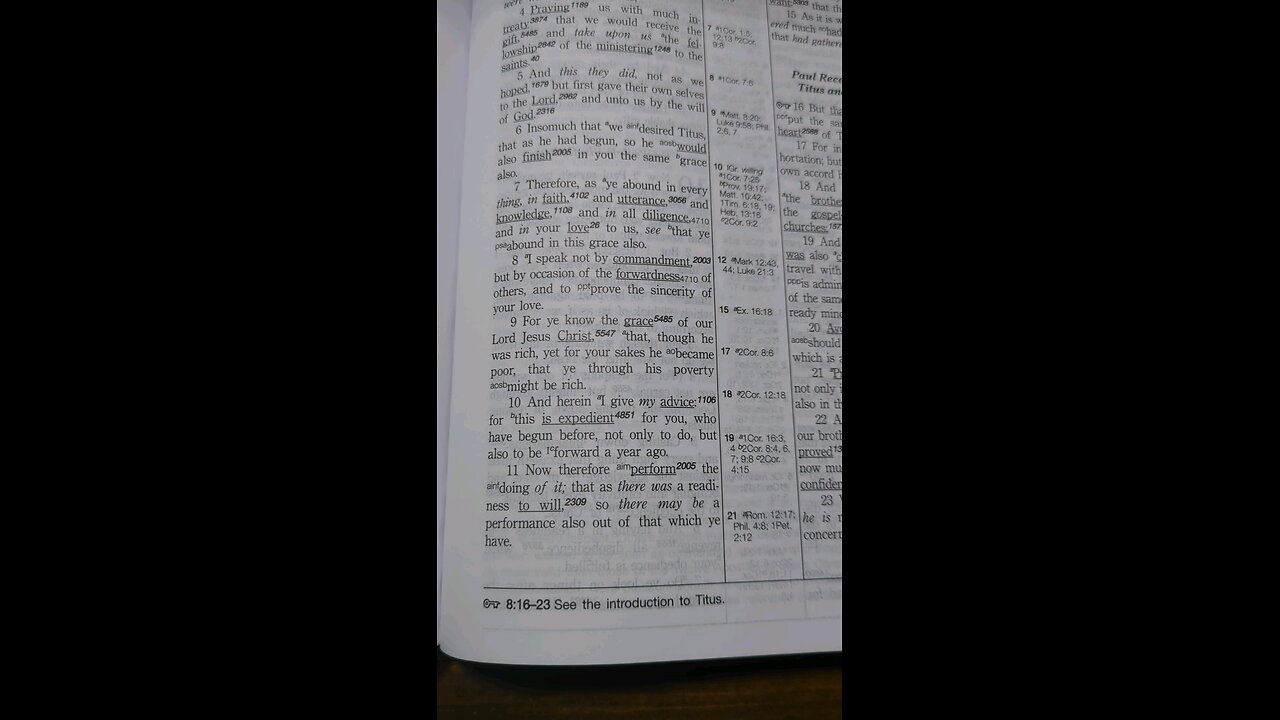 4 Praying1189 us with much in-
treaty3874 that we would receive the
gift,5485 and take upon us athe fel-
lowship2842 of the ministering1248 to the
saints.40
5 And this they did, not as we
hoped,1679 but first gave their own selves
to the Lord,2962 and unto us by the will
of God.2316
6 Insomuch that awe ainfdesired Titus,
that as he had begun, so he aosbwould
also finish2005 in you the same bgrace
also.
7 Therefore, as aye abound in every
thing, in faith,4102 and utterance,3056 and
knowledge,1108 and in all diligence,4710
and in your love26 to us, see bthat ye
psaabound in this grace also.
8 aI speak not by commandment,2003
but by occasion of the forwardness4710 of
others, and to pptprove the sincerity of
your love.
9 For ye know the grace5485 of our
Lord Jesus Christ,5547 athat, though he
was rich, yet for your sakes he aobecame
poor, that ye through his poverty
aosbmight be rich.
10 And herein aI give my advice:1106
for bthis is expedient4851 for you, who
have begun before, not only to do, but
also to be 1cforward a year ago.
11 Now therefore aimperform2005 the
ainfdoing of it; that as there was a readi-
ness to will,2309 so there may be a
performance also out of that which ye
have.
7 a1Cor. 1:5;
12:13 b2Cor.
9:8
8 a1Cor. 7:6
9 aMatt. 8:20;
Luke 9:58; Phil.
2:6, 7
10 1Gr. willing
a1Cor. 7:25
bProv. 19:17;
Matt. 10:42;
1Tim. 6:18, 19;
Heb. 13:16
c2Cor. 9:2
12 aMark 12:43,
44; Luke 21:3
15 aEx. 16:18
17 a2Cor. 8:6
18 a2Cor. 12:18
19 a1Cor. 16:3,
4 b2Cor. 8:4, 6,
7; 9:8 c2Cor.
4:15
21 aRom. 12:17;
Phil. 4:8; 1Pet.
2:12
15 As it is
ered much
that had gather
Paul Rec
Titus an
16 But
put the
heart2588 of
17 For in
hortation; but
own accord
18 And
athe
the gospel
churches;
19 And
was also
travel with
pppis admin
of the sam
ready min
20
aosbshould
which is
21
not only
also in
22
our brot
proved
now mu
confiden
23
he is
concern
8:16–23 See the introduction to Titus.